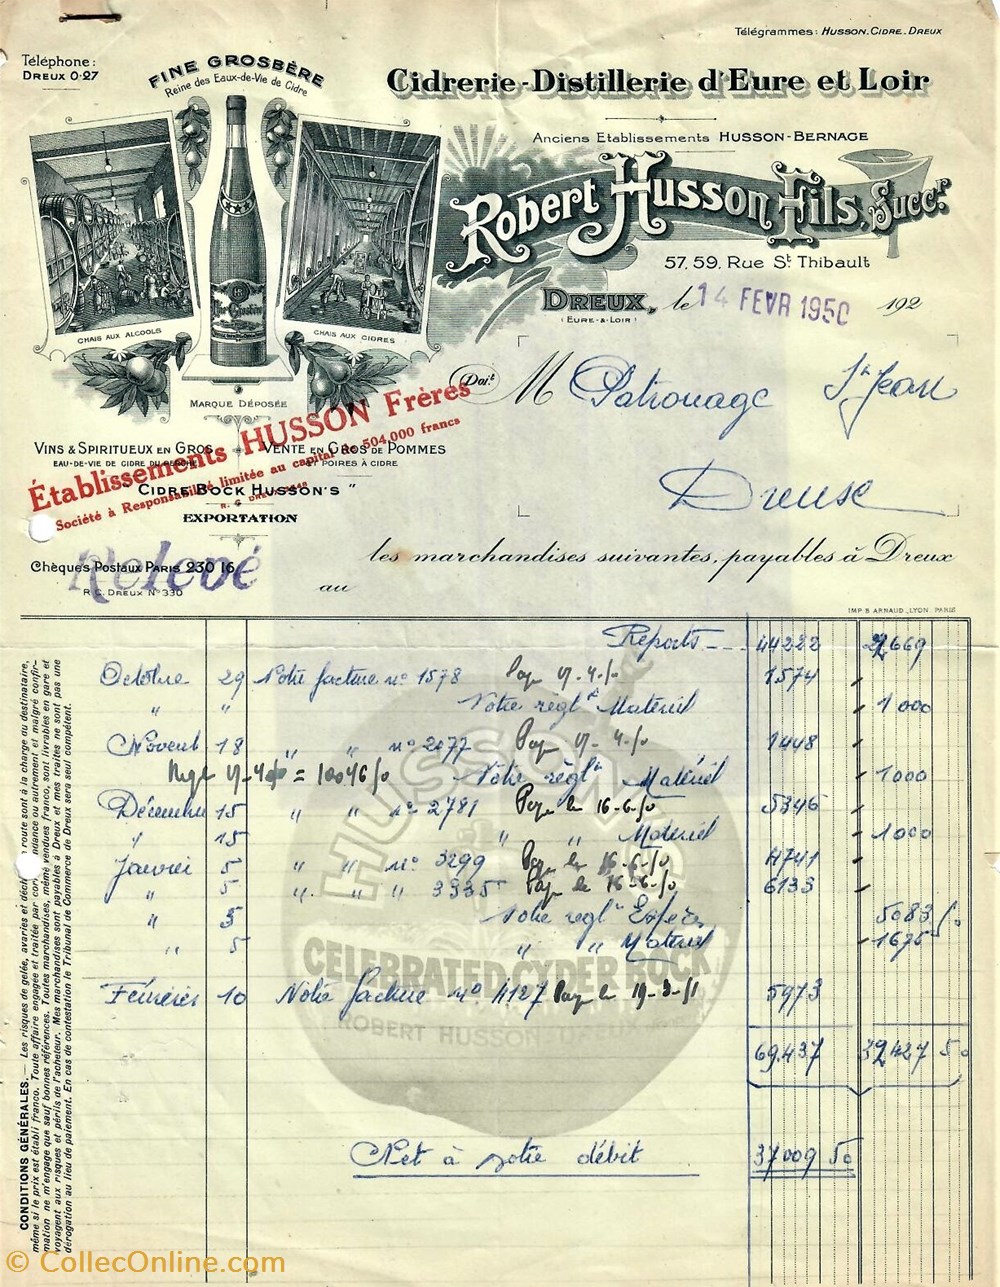 Télégrammes: HUSSON.CIDRE.DREUX
Téléphone:
DREUX 0-27
FINE GROSBÈRE
Reine des Eaux-de-Vie de Cidre
Cidrerie-Distillerie d'Eure et Loir
Anciens Etablissements HUSSON-BERNAGE
Robert Husson Fils, Succr.
57, 59, Rue St Thibault
DREUX, le 14 FEVR 1950 192
(EURE-&-LOIR)
CHAIS AUX ALCOOLS
CHAIS AUX CIDRES
MARQUE DÉPOSÉE
Doit
M Patronage St Jean
Dreux
VINS & SPIRITUEUX EN GROS
VENTE EN GROS DE POMMES
EAU-DE-VIE DE CIDRE DU PERCHE
ET POIRES A CIDRE
Établissements HUSSON Frères
Société à Responsabilité limitée au capital de 504.000 francs
"CIDRE BOCK HUSSON'S"
EXPORTATION
Chèques Postaux PARIS 230 16
Relevé
R.C. DREUX N° 330
les marchandises suivantes, payables à Dreux
au
IMP. B. ARNAUD_LYON. PARIS
Reports 44222 669
Octobre 29 Notre facture n° 1578 1574
" " Votre règlt Matériel 1000
Novemb 18 " " n° 2077 1448
= 10046 Votre règlt Matériel 1000
Décembre 15 " n° 2781 Payé le 16-6-50 5346
" 15 " " Matériel 1000
Janvier 5 " " n° 3299 Payé le 16-6-50 4741
" 5 " " " 3335 Payé le 16-6-50 6133
" 5 Votre règlt Espèces 5083
" 5 " " Matériel 1675
Février 10 Notre facture n° 4127 Payé le 19-3-51 5973
69.437 32427 50
Net à notre débit 37009 50
HUSSON
CELEBRATED CYDER BOCK
ROBERT HUSSON-DREUX
CONDITIONS GÉNÉRALES.— Les risques de gelée, avaries et route sont à la charge du destinataire,
même si le prix est établi franco. Toute affaire engagée et traitée par autrement et malgré confir-
mation ne m'engage que sauf bonnes références. Toutes marchandises, même vendues franco, sont livrables en gare et
voyagent aux risques et périls de l'acheteur. Mes marchandises sont payables à Dreux et mes traites ne sont pas une
dérogation au lieu de paiement. En cas de contestation le Tribunal de Commerce de Dreux sera seul compétent.
© CollecOnline.com